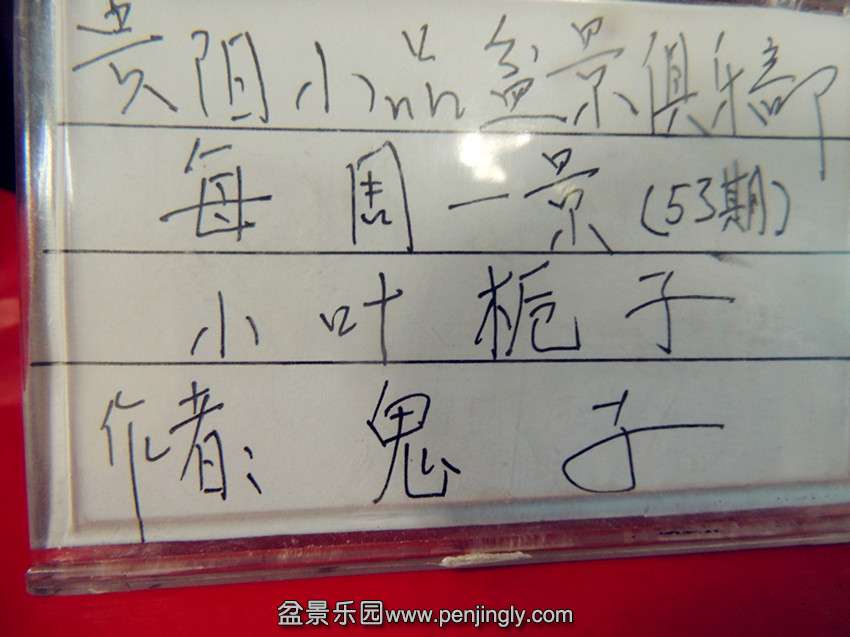 贵阳小品盆景俱乐部
每周一景(53期)
小叶栀子
作者:鬼子
盆景乐园www.penjingly.com